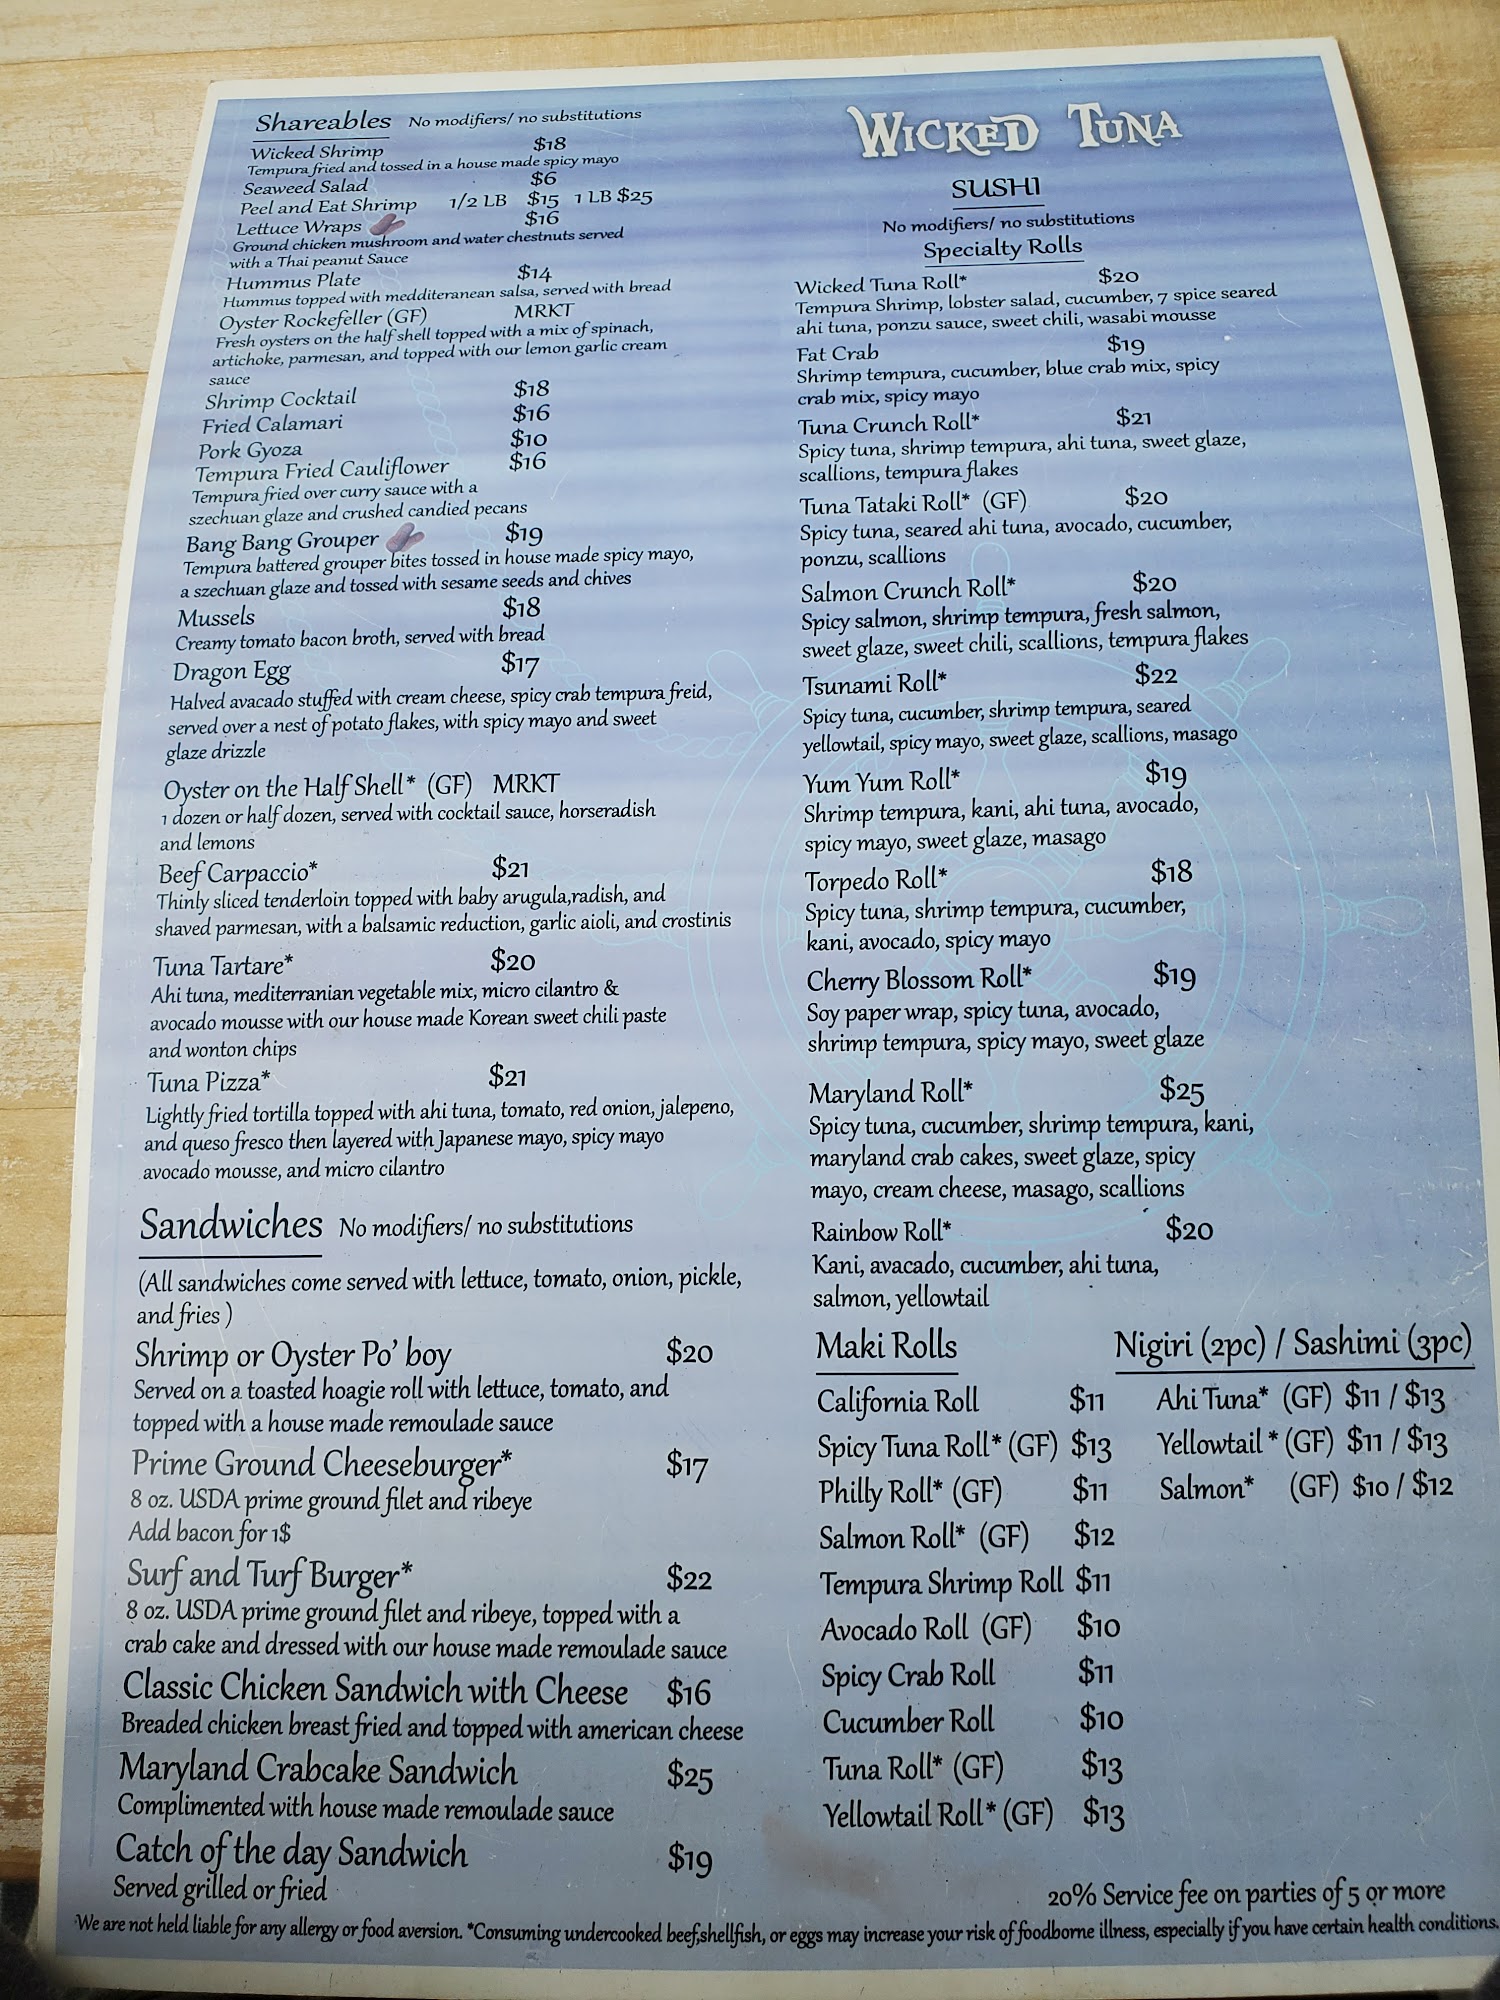 Shareables No modifiers/ no substitutions
Wicked Shrimp $18
Tempura fried and tossed in a house made spicy mayo
Seaweed Salad $6
Peel and Eat Shrimp 1/2 LB $15 1 LB $25
Lettuce Wraps $16
Ground chicken mushroom and water chestnuts served
with a Thai peanut Sauce
Hummus Plate $14
Hummus topped with medditeranean salsa, served with bread
Oyster Rockefeller (GF) MRKT
Fresh oysters on the half shell topped with a mix of spinach,
artichoke, parmesan, and topped with our lemon garlic cream
sauce
Shrimp Cocktail $18
Fried Calamari $16
Pork Gyoza $10
Tempura Fried Cauliflower $16
Tempura fried over curry sauce with a
szechuan glaze and crushed candied pecans
Bang Bang Grouper $19
Tempura battered grouper bites tossed in house made spicy mayo,
a szechuan glaze and tossed with sesame seeds and chives
Mussels $18
Creamy tomato bacon broth, served with bread
Dragon Egg $17
Halved avacado stuffed with cream cheese, spicy crab tempura freid,
served over a nest of potato flakes, with spicy mayo and sweet
glaze drizzle
Oyster on the Half Shell* (GF) MRKT
1 dozen or half dozen, served with cocktail sauce, horseradish
and lemons
Beef Carpaccio* $21
Thinly sliced tenderloin topped with baby arugula,radish, and
shaved parmesan, with a balsamic reduction, garlic aioli, and crostinis
Tuna Tartare* $20
Ahi tuna, mediterranian vegetable mix, micro cilantro &
avocado mousse with our house made Korean sweet chili paste
and wonton chips
Tuna Pizza* $21
Lightly fried tortilla topped with ahi tuna, tomato, red onion, jalepeno,
and queso fresco then layered with Japanese mayo, spicy mayo
avocado mousse, and micro cilantro
Sandwiches No modifiers/ no substitutions
(All sandwiches come served with lettuce, tomato, onion, pickle,
and fries )
Shrimp or Oyster Po' boy $20
Served on a toasted hoagie roll with lettuce, tomato, and
topped with a house made remoulade sauce
Prime Ground Cheeseburger* $17
8 oz. USDA prime ground filet and ribeye
Add bacon for 1$
Surf and Turf Burger* $22
8 oz. USDA prime ground filet and ribeye, topped with a
crab cake and dressed with our house made remoulade sauce
Classic Chicken Sandwich with Cheese $16
Breaded chicken breast fried and topped with american cheese
Maryland Crabcake Sandwich $25
Complimented with house made remoulade sauce
Catch of the day Sandwich $19
Served grilled or fried
WICKED TUNA
SUSHI
No modifiers/ no substitutions
Specialty Rolls
Wicked Tuna Roll* $20
Tempura Shrimp, lobster salad, cucumber, 7 spice seared
ahi tuna, ponzu sauce, sweet chili, wasabi mousse
Fat Crab $19
Shrimp tempura, cucumber, blue crab mix, spicy
crab mix, spicy mayo
Tuna Crunch Roll* $21
Spicy tuna, shrimp tempura, ahi tuna, sweet glaze,
scallions, tempura flakes
Tuna Tataki Roll* (GF) $20
Spicy tuna, seared ahi tuna, avocado, cucumber,
ponzu, scallions
Salmon Crunch Roll* $20
Spicy salmon, shrimp tempura, fresh salmon,
sweet glaze, sweet chili, scallions, tempura flakes
Tsunami Roll* $22
Spicy tuna, cucumber, shrimp tempura, seared
yellowtail, spicy mayo, sweet glaze, scallions, masago
Yum Yum Roll* $19
Shrimp tempura, kani, ahi tuna, avocado,
spicy mayo, sweet glaze, masago
Torpedo Roll* $18
Spicy tuna, shrimp tempura, cucumber,
kani, avocado, spicy mayo
Cherry Blossom Roll* $19
Soy paper wrap, spicy tuna, avocado,
shrimp tempura, spicy mayo, sweet glaze
Maryland Roll* $25
Spicy tuna, cucumber, shrimp tempura, kani,
maryland crab cakes, sweet glaze, spicy
mayo, cream cheese, masago, scallions
Rainbow Roll* $20
Kani, avacado, cucumber, ahi tuna,
salmon, yellowtail
Maki Rolls
California Roll $11
Spicy Tuna Roll* (GF) $13
Philly Roll* (GF) $11
Salmon Roll* (GF) $12
Tempura Shrimp Roll $11
Avocado Roll (GF) $10
Spicy Crab Roll $11
Cucumber Roll $10
Tuna Roll* (GF) $13
Yellowtail Roll* (GF) $13
Nigiri (2pc) / Sashimi (3pc)
Ahi Tuna* (GF) $11 / $13
Yellowtail * (GF) $11 / $13
Salmon* (GF) $10 / $12
20% Service fee on parties of 5 or more
We are not held liable for any allergy or food aversion. *Consuming undercooked beef,shellfish, or eggs may increase your risk of foodborne illness, especially if you have certain health conditions.